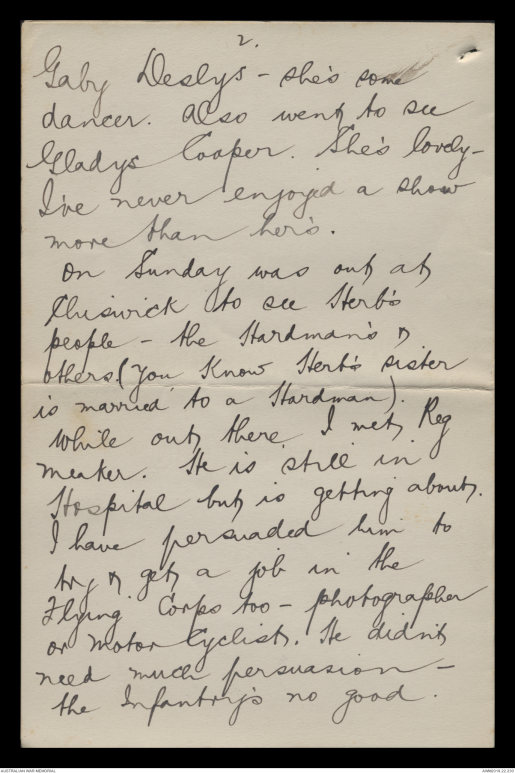 2.
Gaby Deslys - she's some
dancer. Also went to see
Gladys Cooper. She's lovely -
I've never enjoyed a show
more than her's.
On Sunday was out at
Chiswick to see Herb's
people - the Hardman's &
others (you know Herb's sister
is married to a Hardman).
While out there I met Reg
Meaker. He is still in
Hospital but is getting about.
I have persuaded him to
try & get a job in the
Flying Corps too - photographer
or Motor Cyclist. He didn't
need much persuasion -
the Infantry's no good.
AUSTRALIAN WAR MEMORIAL